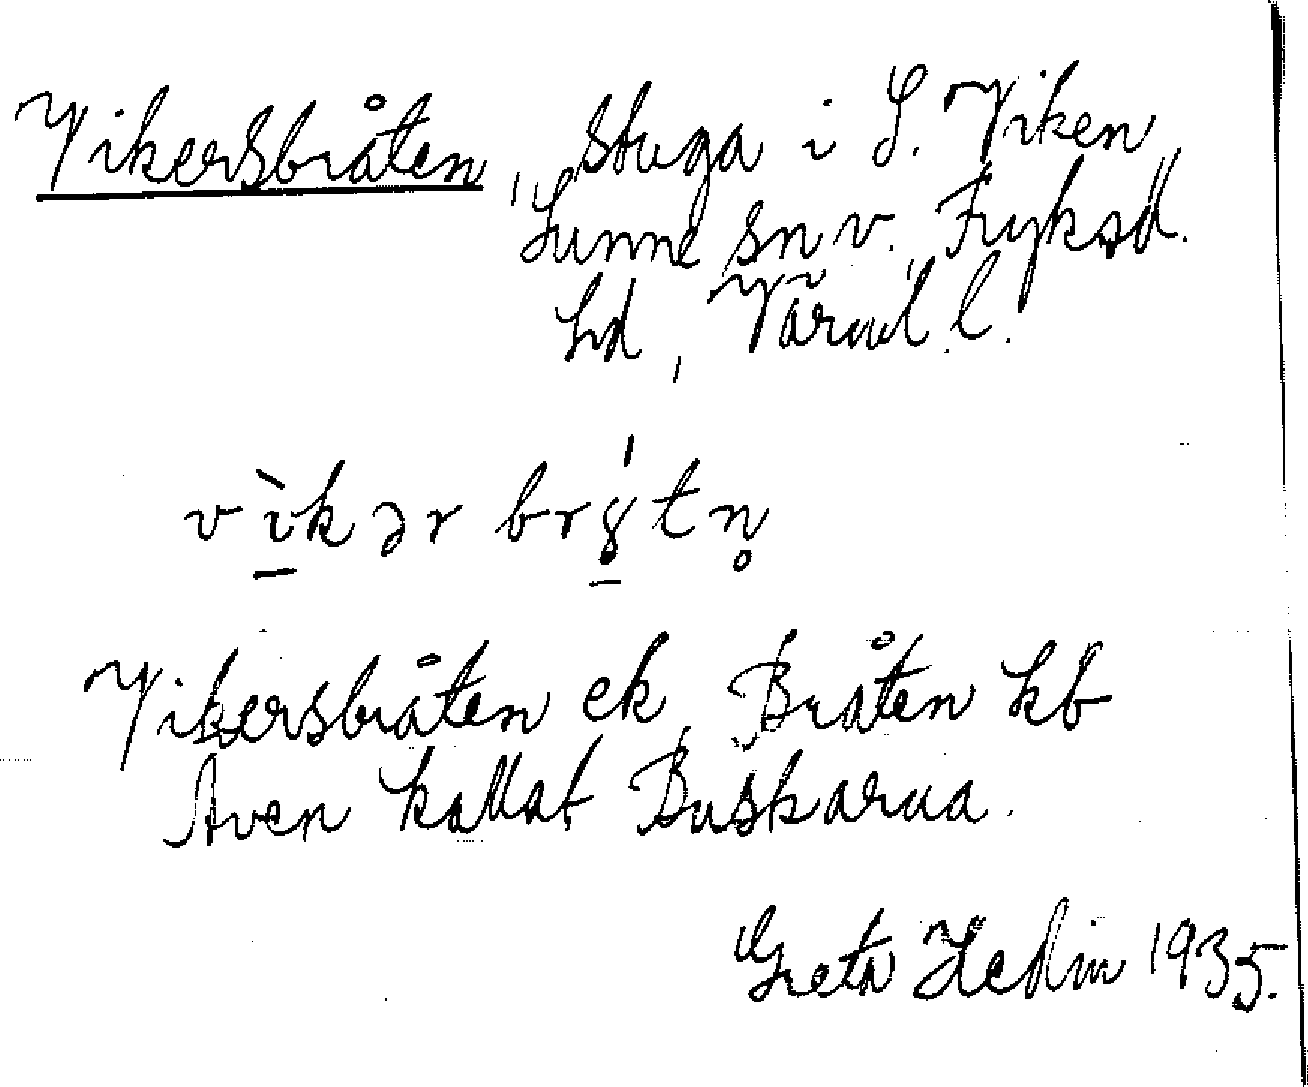 Vikersbråten, stuga i S. Viken
Sunne sn v. Fryksd.
hd, Värml. l.
vìkər brɣ́tn̥
Vikersbråten ek, Bråten kb
Även kallat Buskarna.
Greta Hedin 1935.